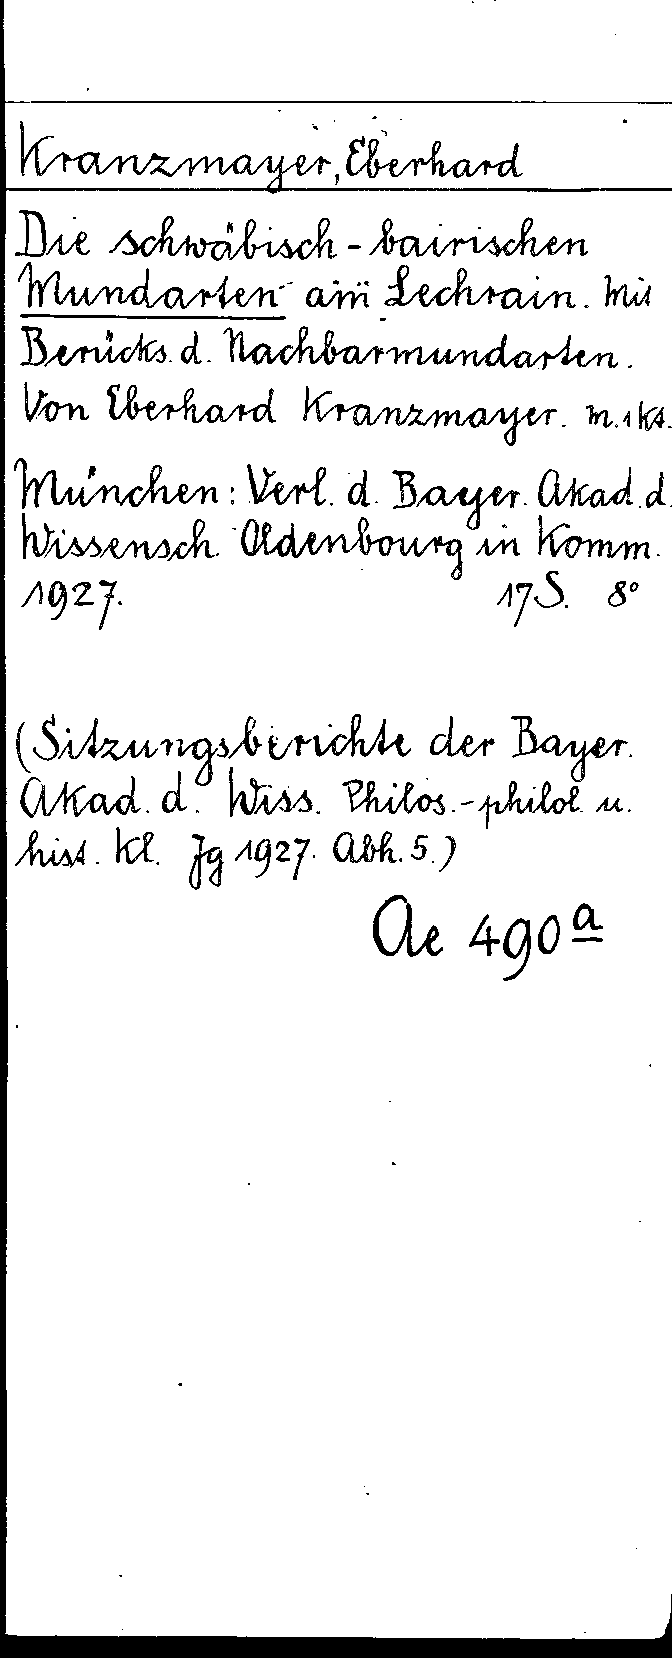 Kranzmayer, Eberhard
Die schwäbisch-bairischen
Mundarten am Lechrain. Mit
Berücks. d. Nachbarmundarten.
Von Eberhard Kranzmayer. m. 1 Kt.
München: Verl. d. Bayer. Akad. d.
Wissensch. Oldenbourg in Komm.
1927. 17 S. 8°
(Sitzungsberichte der Bayer.
Akad. d. Wiss. Philos.-philol. u.
hist. Kl. Jg 1927. Abh. 5.)
Ae 490 a